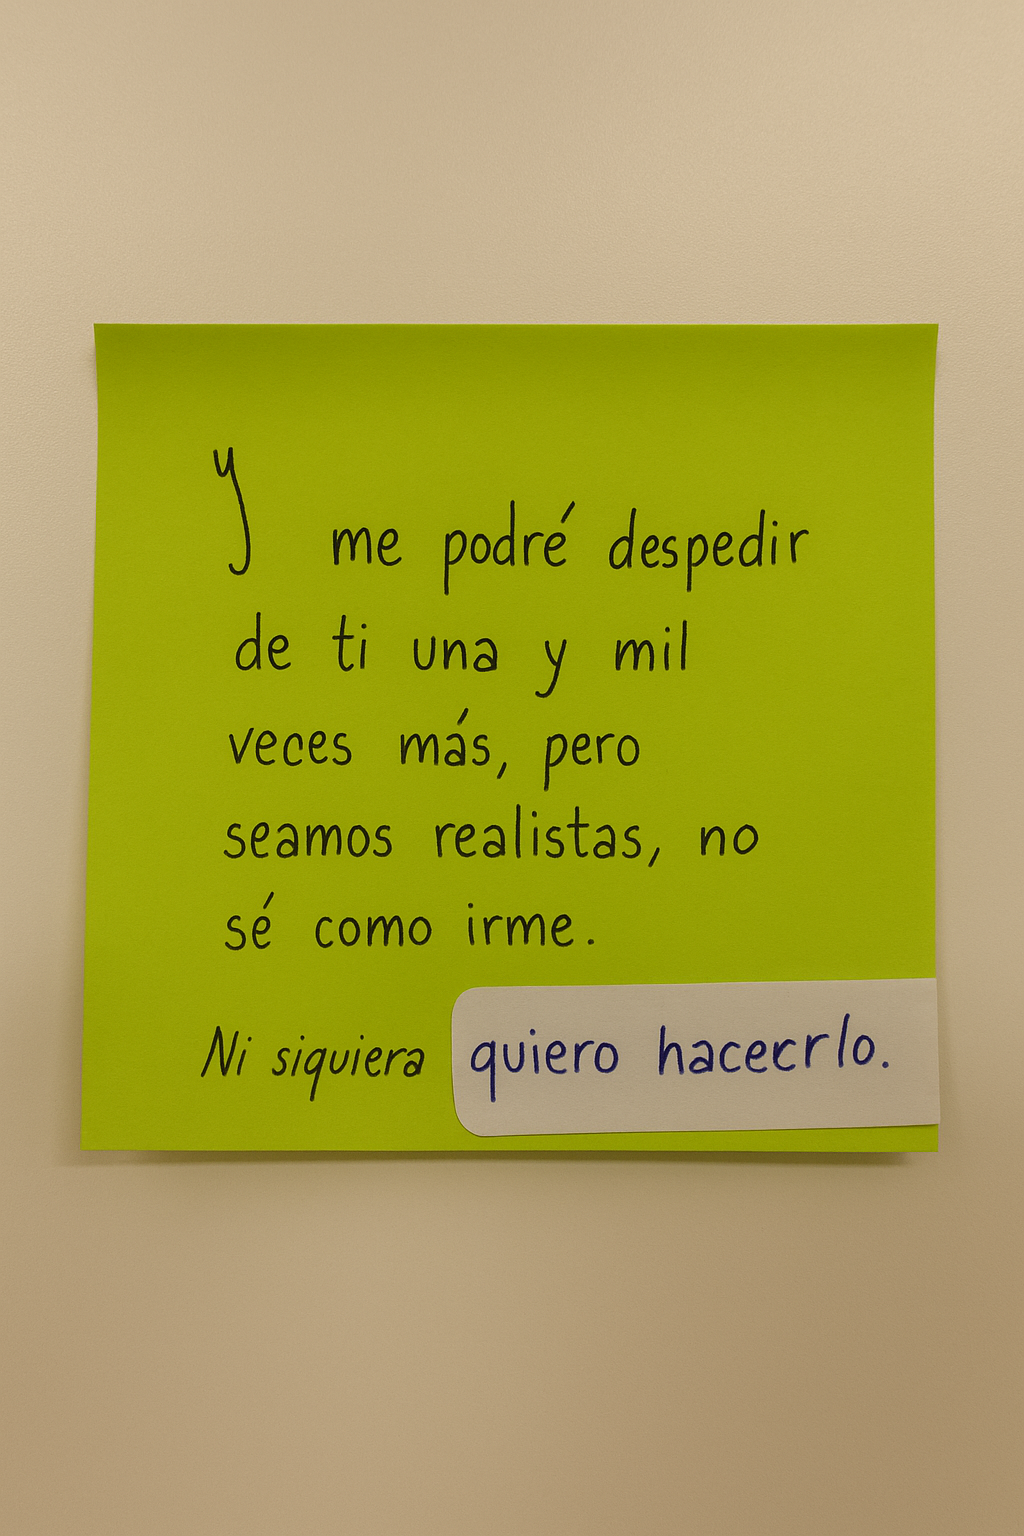 y me podré despedir
de ti una y mil
veces más, pero
seamos realistas, no
sé como irme.
Ni siquiera quiero hacecrlo.